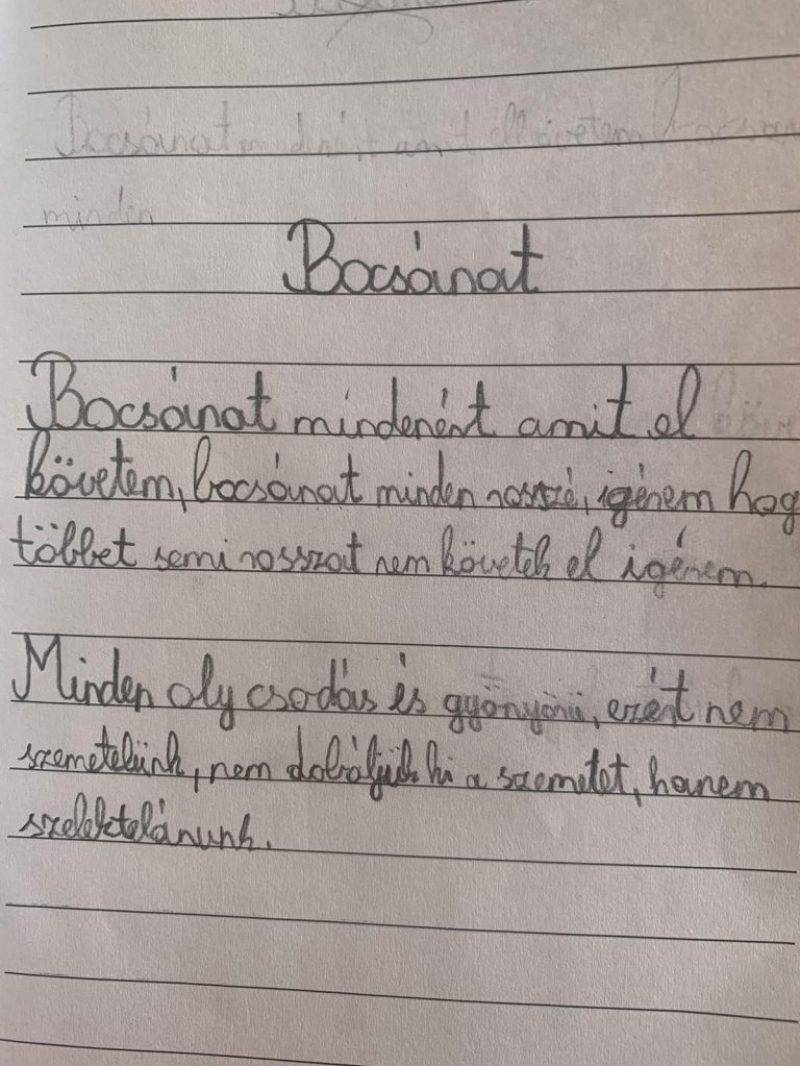 Bocsánat
minden
Bocsánat
Bocsánat mindenért amit el
követem, bocsánat minden rosszé, igérem hog
többet semi rosszat nem követek el igérem.
Minden oly csodás és gyönyörü, ezért nem
szemetelünk, nem dobáljuk ki a szemetet, hanem
szelektelárunk.